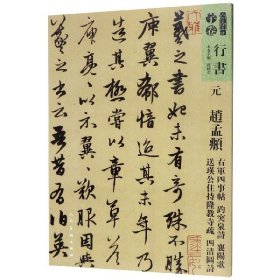 行書
元
趙孟頫
右軍四事帖 趵突泉詩 襄陽歌
送瑛公住持隆教寺疏 四清圖詩
羲之書始未有奇殊不勝
庾翼郗愔迨其末年乃
造其極嘗以章草答
庾亮亮以示翼翼歎服
因與羲之書云吾昔有